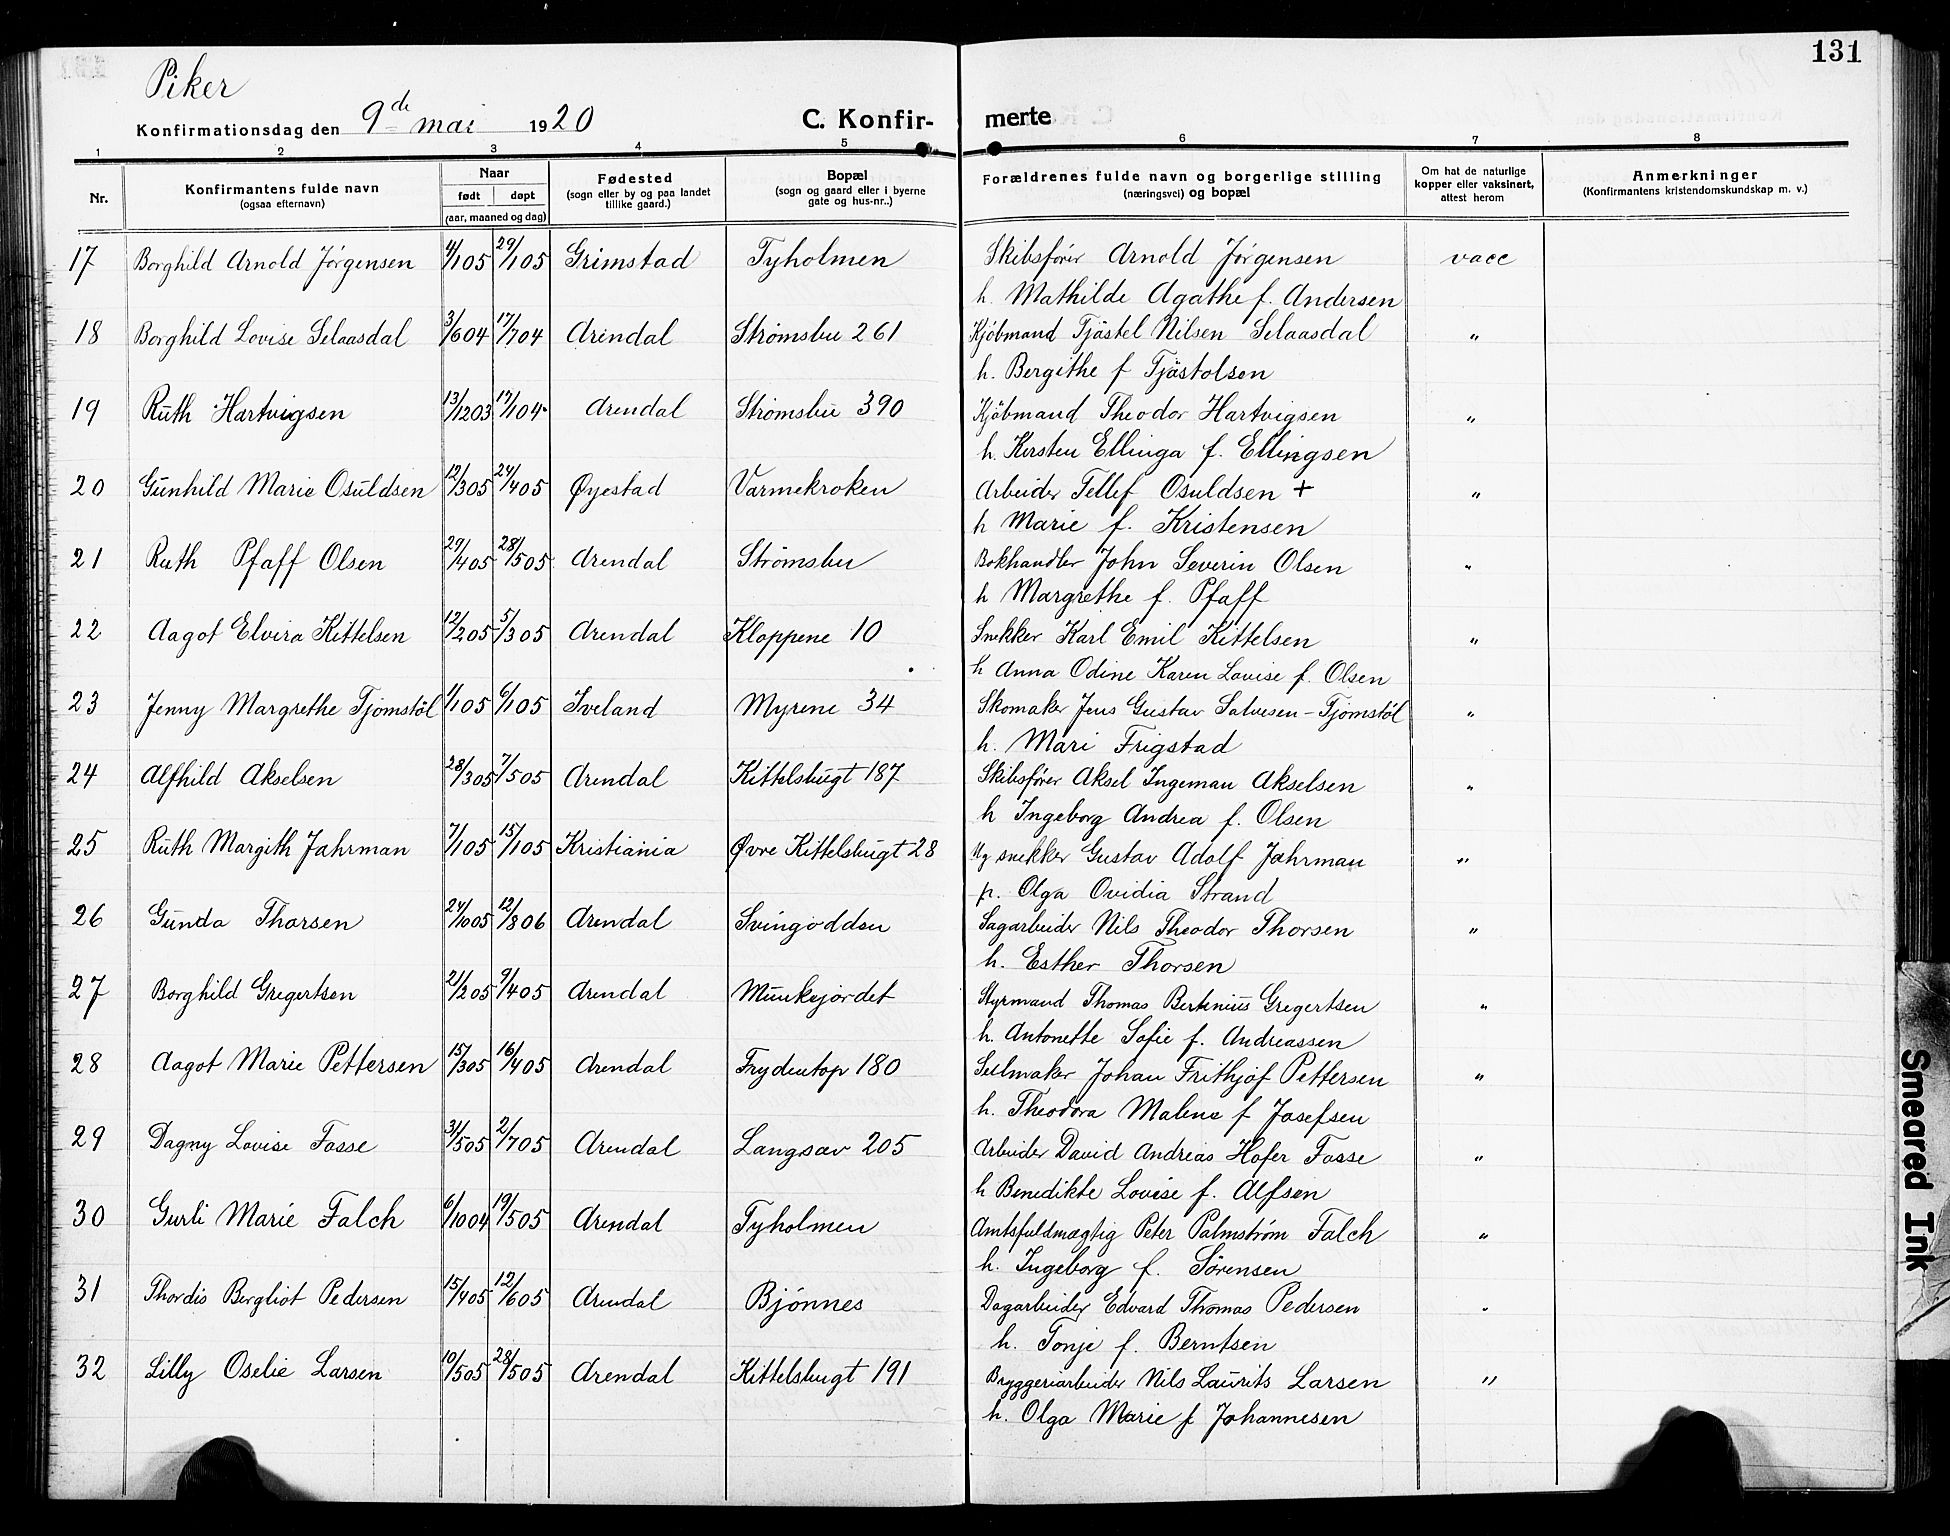 131
Piker
Konfirmationsdag den 9de mai 1920 C. Konfir- merte
1 2 3 4 5 6 7 8
Nr. Konfirmantens fulde navn (ogsaa efternavn) Naar født døpt (aar, maaned og dag) Fødested (sogn eller by og paa landet tillike gaard.) Bopæl (sogn og gaard eller i byerne gate og hus-nr..) Forældrenes fulde navn og borgerlige stilling (næringsvei) og bopæl Om hat de naturlige kopper eller vaksinert, attest herom Anmerkninger (Konfirmantens kristendomskundskap m. v.)
17 Borghild Arnold Jørgensen 4/1 05 29/1 05 Grimstad Tyholmen Skibsfører Arnold Jørgensen vacc
h. Mathilde Agathe f. Andersen
18 Borghild Lovise Selaasdal 3/6 04 17/7 04 Arendal Strømsbu 261 Kjøbmand Tjästel Nilsen Selaasdal "
h. Bergithe f Tjästolsen
19 Ruth Hartvigsen 13/12 03 17/1 04 Arendal Strømsbu 390 Kjøbmand Theodor Hartvigsen "
h. Kersten Ellinga f. Ellingsen
20 Gunhild Marie Osuldsen 12/3 05 24/4 05 Øyestad Varmekroken Arbeider Tellef Osuldsen + "
h Marie f. Kristensen
21 Ruth Pfaff Olsen 29/4 05 28/5 05 Arendal Strømsbu Bokhandler John Severin Olsen "
h Margrethe f. Pfaff
22 Aagot Elvira Kittelsen 12/2 05 5/3 05 Arendal Kloppene 10 Snekker Karl Emil Kittelsen "
h Anna Odine Karen Lovise f. Olsen
23 Jenny Margrethe Tjomstöl 1/1 05 6/1 05 Iveland Myrene 34 Skomaker Jens Gustav Salvesen-Tjomstöl "
h. Mari Frigstad
24 Alfhild Akselsen 28/3 05 7/5 05 Arendal Kittelsbugt 187 Skibsfører Aksel Ingeman Akselsen "
h Ingeborg Andrea f. Olsen
25 Ruth Margith Jahrman 7/1 05 15/1 05 Kristiania Øvre Kittelsbugt 28 Ug snekker Gustav Adolf Jahrman "
p. Olga Ovidia Strand
26 Gunda Thorsen 24/10 05 12/8 06 Arendal Svingodden Sagarbeider Nils Theodor Thorsen "
h. Esther Thorsen
27 Borghild Gregertsen 21/2 05 9/4 05 Arendal Munkejordet Styrmand Thomas Bertenius Gregertsen "
h. Antonette Sofie f. Andreassen
28 Aagot Marie Pettersen 15/3 05 16/4 05 Arendal Frydentop 180 Seilmaker Johan Frithjof Pettersen "
h. Theodora Malene f Josefsen
29 Dagny Lovise Fosse 31/5 05 2/7 05 Arendal Langsæv 205 Arbeider David Andreas Hofer Fosse "
h Benedikte Lovise f. Alfsen
30 Gurli Marie Falch 6/10 04 19/5 05 Arendal Tyholmen Amtsfuldmægtig Peter Palmstrøm Falch "
h. Ingeborg f. Sørensen
31 Thordis Bergliot Pedersen 15/4 05 12/6 05 Arendal Bjønnes Dagarbeider Edvard Thomas Pedersen "
h. Tonje f. Berntsen
32 Lilly Oselie Larsen 10/5 05 28/5 05 Arendal Kittelsbugt 191 Bryggeriarbeider Nils Laurits Larsen "
h. Olga Marie f Johannesen
Smeared Ink